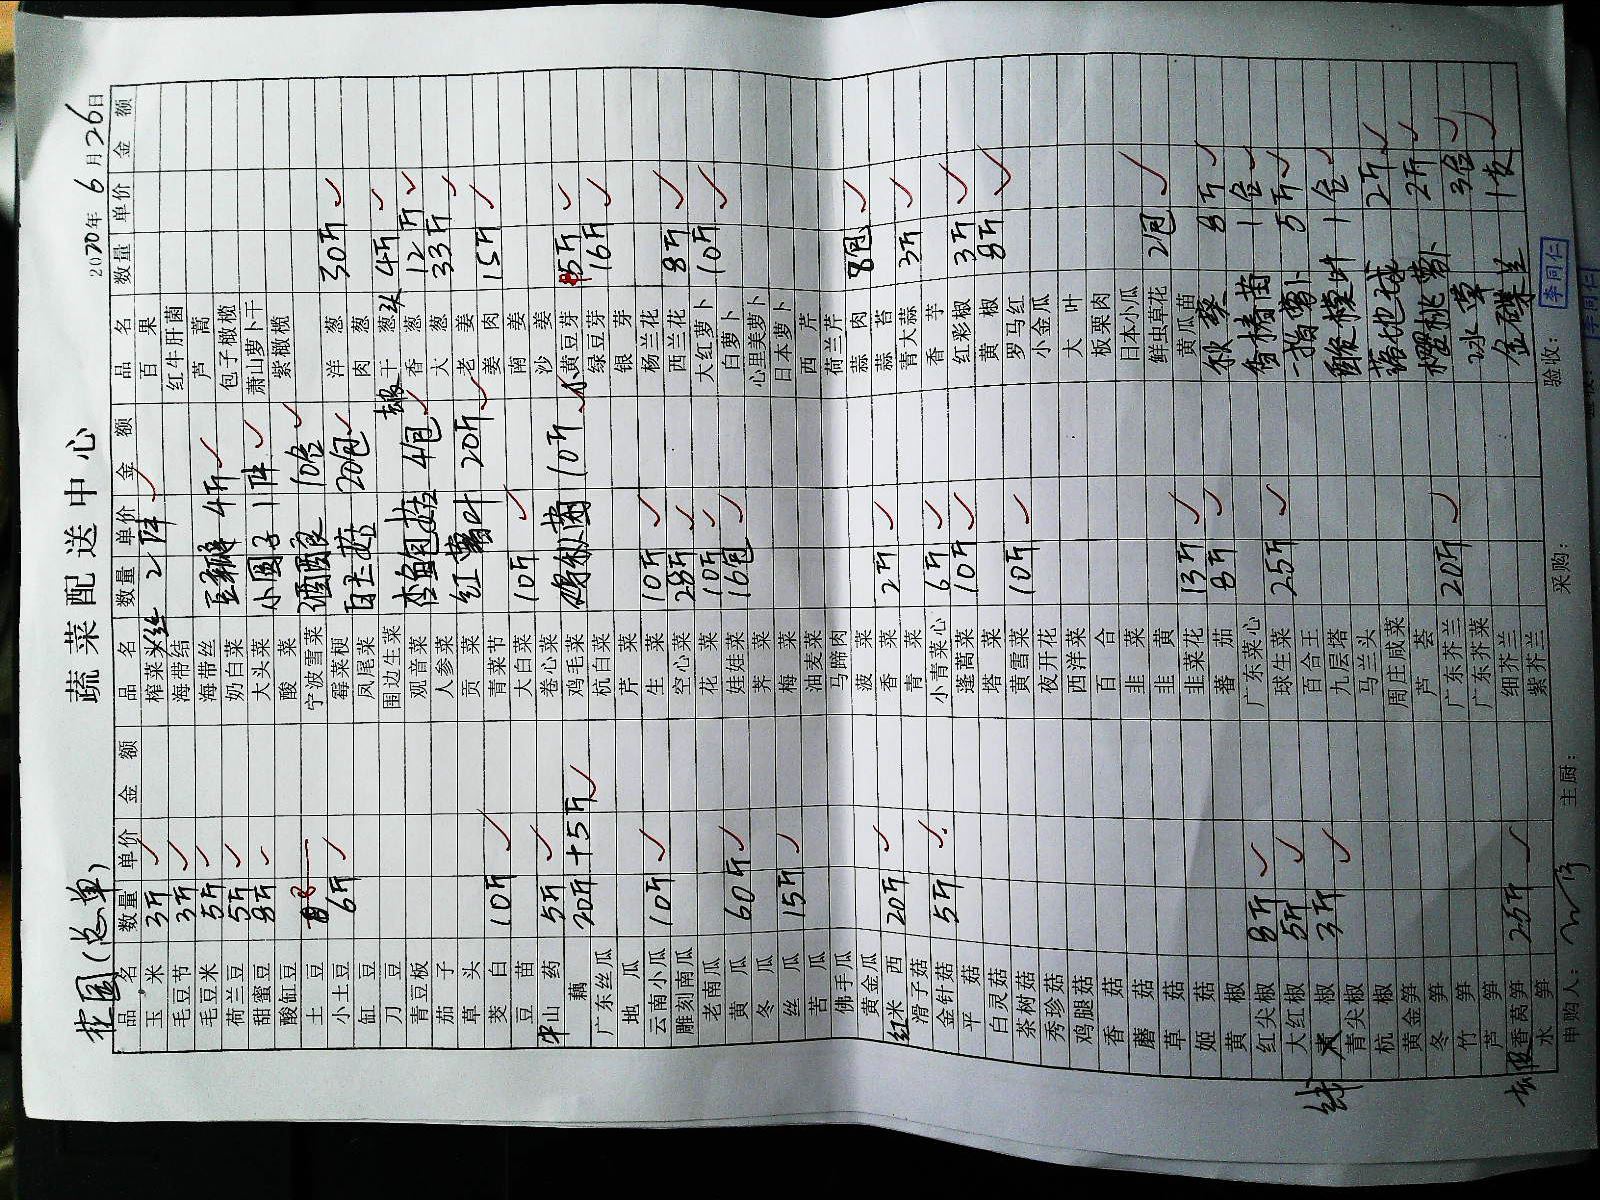 花园(总单)
蔬菜配送中心
2020年6月26日
品名 数量 单价 金额 品名 数量 单价 金额 品名 数量 单价 金额
玉米 3斤 榨菜丝 2件 百果
毛豆节 3斤 海带结 红牛肝菌
毛豆米 5斤 海带丝 芦蒿
荷兰豆 5斤 奶白菜 豆瓣 4斤 包子橄榄
甜蜜豆 8斤 大头菜 小圆子 1件 萧山萝卜干
酸缸豆 酸菜 紫橄榄
土豆 宁波雪菜 酒酿 10盒
小土豆 6斤 霉菜梗 洋葱 30斤
缸豆 凤尾菜 白灵菇 20包 肉葱
刀豆 围边生菜 干葱头 4斤
青豆板 观音菜 杏鲍菇 4包 香葱 12斤
茄子 人参菜 大葱 33斤
草头 贡菜 红薯叶 20斤 老姜
茭白 10斤 青菜节 姜肉 15斤
豆苗 大白菜 10斤 南姜
山药 5斤 卷心菜 沙姜
藕 20斤+5斤 鸡毛菜 鸡枞菌 10斤 小黄豆芽 15斤
广东丝瓜 杭白菜 绿豆芽 16斤
地瓜 芹菜 银芽
云南小瓜 10斤 生菜 10斤 杨兰花
雕刻南瓜 空心菜 28斤 西兰花 8斤
老南瓜 花菜 10斤 大红萝卜 10斤
黄瓜 60斤 娃娃菜 16包 白萝卜
冬瓜 荠菜 心里美萝卜
丝瓜 15斤 梅菜 日本萝卜
苦瓜 油麦菜 西芹
佛手瓜 马蹄肉 荷兰芹
黄金瓜 菠菜 蒜肉 8包
红米西 20斤 香菜 2斤 蒜苔
滑子菇 青菜 青大蒜 3斤
金针菇 5斤 小青菜心 6斤 香芋
平菇 蓬蒿菜 10斤 红彩椒 3斤
白灵菇 塔菜 黄椒 8斤
茶树菇 黄雪菜 10斤 罗马红
秀珍菇 夜开花 小金瓜
鸡腿菇 西洋菜 大叶
香菇 百合 板栗肉
蘑菇 韭菜 日本小瓜
草菇 韭黄 鲜虫草花 2包
姬菇 韭菜花 13斤 黄瓜苗
黄椒 蕃茄 8斤 秋葵 8斤
红尖椒 8斤 广东菜心 香椿苗 1盒
大红椒 5斤 球生菜 25斤 一指萝卜 5斤
线椒 3斤 百合王 酸模叶 1盒
青尖椒 九层塔
杭椒 马兰头 落地球 2斤
黄金笋 周庄咸菜 樱桃萝卜 2斤
冬笋 芦荟
竹笋 广东芥兰 20斤 冰草 3盒
芦笋 广东芥菜
香莴笋 25斤 细芥兰 金碟兰 1支
水笋 紫芥兰
申购人： 主厨： 采购： 验收：
李同仁